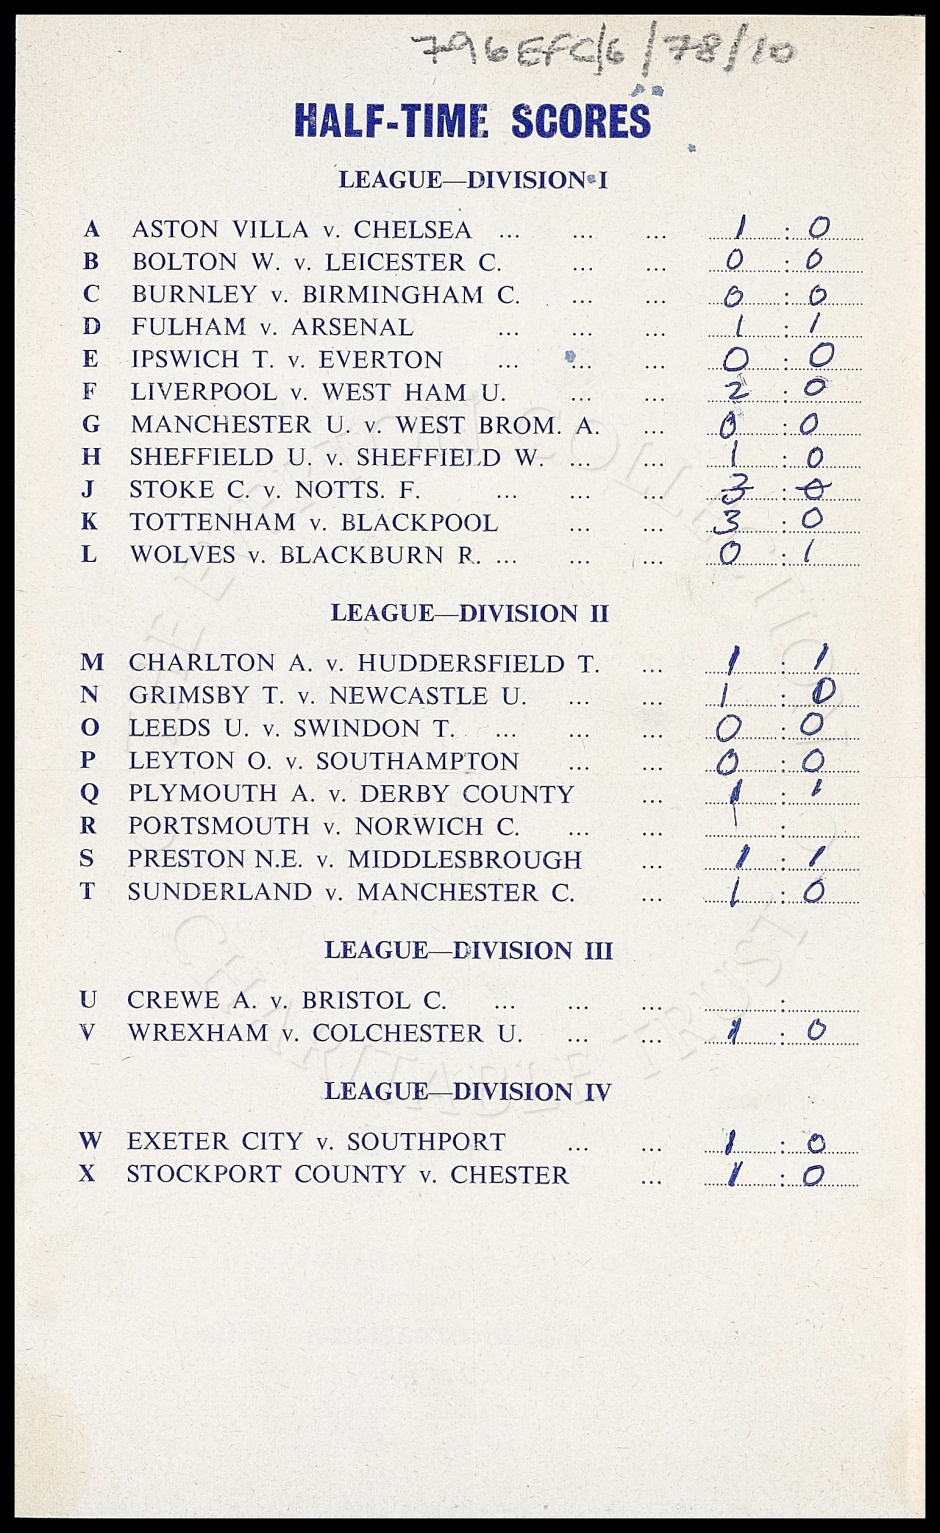 796EFC/6/78/10
HALF-TIME SCORES
LEAGUE—DIVISION I
A ASTON VILLA v. CHELSEA ... ... ... 1 : 0
B BOLTON W. v. LEICESTER C. ... ... 0 : 0
C BURNLEY v. BIRMINGHAM C. ... ... 0 : 0
D FULHAM v. ARSENAL ... ... ... 1 : 1
E IPSWICH T. v. EVERTON ... ... ... 0 : 0
F LIVERPOOL v. WEST HAM U. ... ... 2 : 0
G MANCHESTER U. v. WEST BROM. A. ... 0 : 0
H SHEFFIELD U. v. SHEFFIELD W. ... ... 1 : 0
J STOKE C. v. NOTTS. F. ... ... ... : 0
K TOTTENHAM v. BLACKPOOL ... ... 3 : 0
L WOLVES v. BLACKBURN R. ... ... ... 0 : 1
LEAGUE—DIVISION II
M CHARLTON A. v. HUDDERSFIELD T. ... 1 : 1
N GRIMSBY T. v. NEWCASTLE U. ... ... 1 : 0
O LEEDS U. v. SWINDON T. ... ... ... 0 : 0
P LEYTON O. v. SOUTHAMPTON ... ... 0 : 0
Q PLYMOUTH A. v. DERBY COUNTY ... 1 : 1
R PORTSMOUTH v. NORWICH C. ... ... :
S PRESTON N.E. v. MIDDLESBROUGH ... 1 : 1
T SUNDERLAND v. MANCHESTER C. ... 1 : 0
LEAGUE—DIVISION III
U CREWE A. v. BRISTOL C. ... ... ... :
V WREXHAM v. COLCHESTER U. ... ... 1 : 0
LEAGUE—DIVISION IV
W EXETER CITY v. SOUTHPORT ... ... 1 : 0
X STOCKPORT COUNTY v. CHESTER ... 1 : 0
THE EVERTON COLLECTION
CHARITABLE TRUST